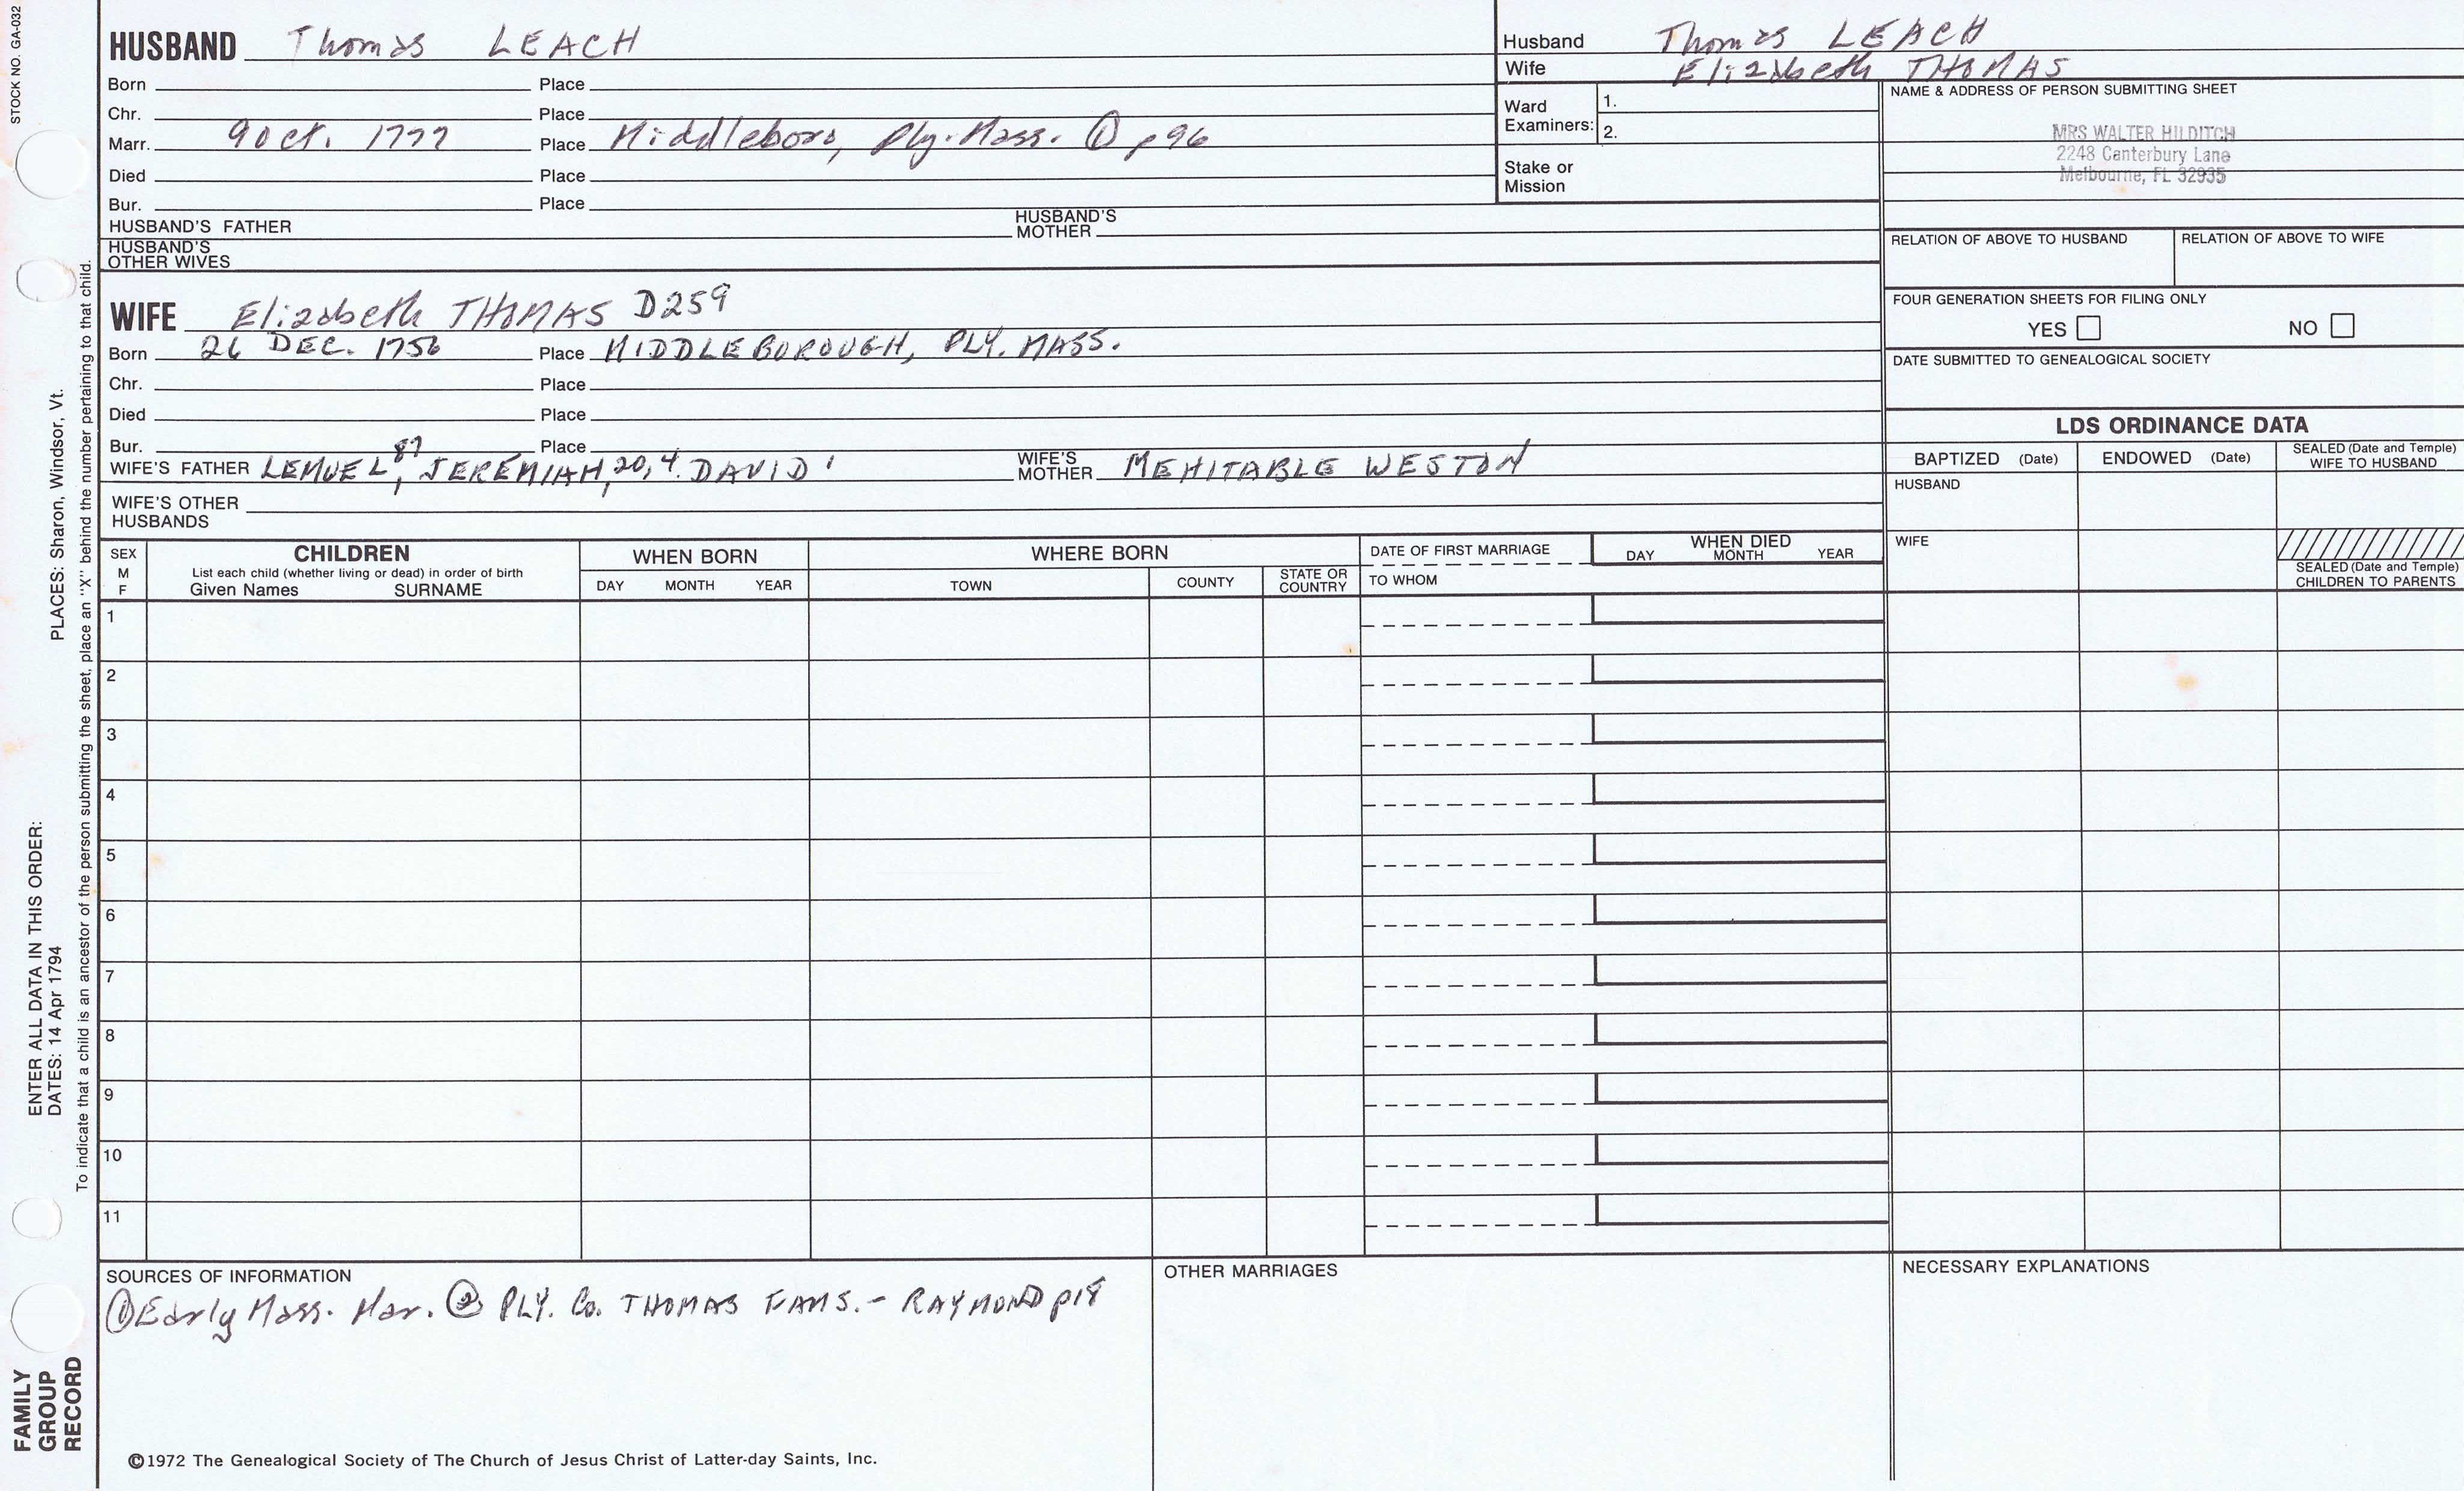 STOCK NO. GA-032
HUSBAND Thomas LEACH
Born Place
Chr. Place
Marr. 9 Oct. 1777 Place Middleboro, Ply. Mass. ① p96
Died Place
Bur. Place
HUSBAND'S FATHER HUSBAND'S MOTHER
HUSBAND'S OTHER WIVES
Husband Thomas LEACH
Wife Elizabeth THOMAS
Ward Examiners: 1.
2.
Stake or Mission
NAME & ADDRESS OF PERSON SUBMITTING SHEET
MRS WALTER HILDITCH
2248 Canterbury Lane
Melbourne, FL 32935
RELATION OF ABOVE TO HUSBAND RELATION OF ABOVE TO WIFE
FOUR GENERATION SHEETS FOR FILING ONLY
YES NO
DATE SUBMITTED TO GENEALOGICAL SOCIETY
WIFE Elizabeth THOMAS D259
Born 26 DEC. 1756 Place MIDDLEBOROUGH, PLY. MASS.
Chr. Place
Died Place
Bur. Place
WIFE'S FATHER LEMUEL 87, JEREMIAH, 20, 4. DAVID 1 WIFE'S MOTHER MEHITABLE WESTON
WIFE'S OTHER HUSBANDS
LDS ORDINANCE DATA
BAPTIZED (Date) ENDOWED (Date) SEALED (Date and Temple) WIFE TO HUSBAND
HUSBAND
WIFE
SEALED (Date and Temple) CHILDREN TO PARENTS
SEX M F
CHILDREN
List each child (whether living or dead) in order of birth
Given Names SURNAME
WHEN BORN
DAY MONTH YEAR
WHERE BORN
TOWN COUNTY STATE OR COUNTRY
DATE OF FIRST MARRIAGE
TO WHOM
WHEN DIED
DAY MONTH YEAR
1
2
3
4
5
6
7
8
9
10
11
SOURCES OF INFORMATION
① Early Mass. Mar. ② PLY. Co. THOMAS FAMS. - RAYMOND p18
OTHER MARRIAGES
NECESSARY EXPLANATIONS
©1972 The Genealogical Society of The Church of Jesus Christ of Latter-day Saints, Inc.
FAMILY
GROUP
RECORD
ENTER ALL DATA IN THIS ORDER:
DATES: 14 Apr 1794 PLACES: Sharon, Windsor, Vt.
To indicate that a child is an ancestor of the person submitting the sheet, place an "X" behind the number pertaining to that child.